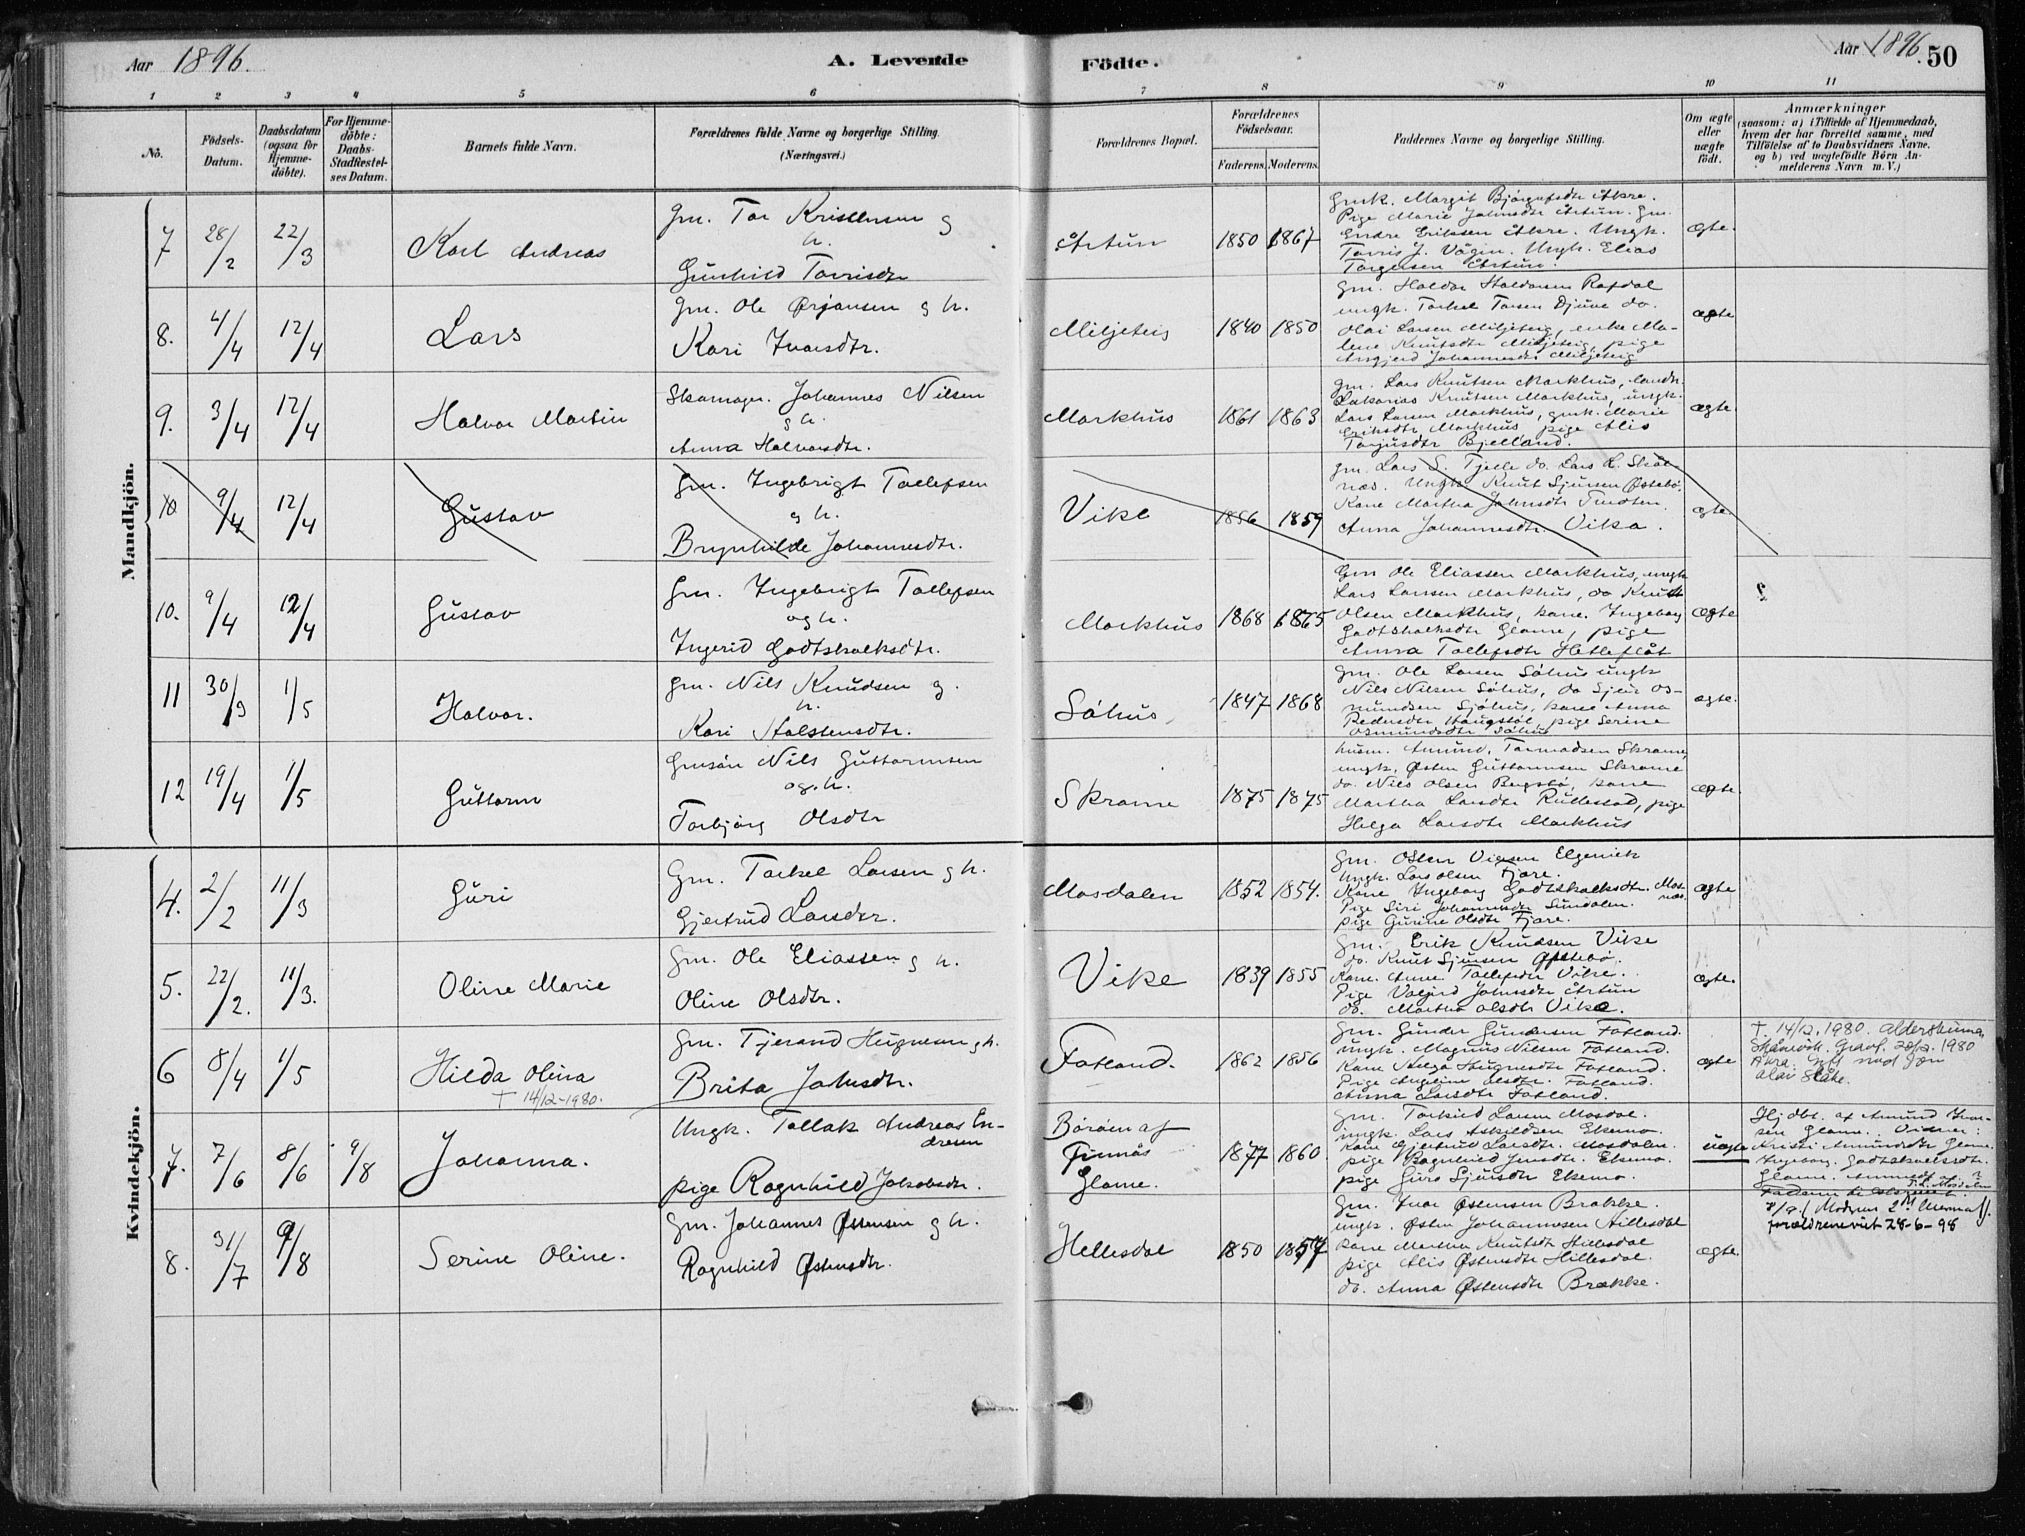 Aar 1896.
A. Levende
Födte.
Aar 1896. 50
1 2 3 4 5 6 7 8 9 10 11
No.
Födsels-
Datum.
Daabsdatum
(ogsaa for
Hjemme-
döbte).
For Hjemme-
döbte:
Daabs-
Stadfæstel-
ses Datum.
Barnets fulde Navn.
Forældrenes fulde Navne og borgerlige Stilling.
(Næringsvei.)
Forældrenes Bopæl.
Forældrenes
Födselsaar.
Faderens. Moderens.
Faddernes Navne og borgerlige Stilling.
Om ægte
eller
uægte
födt.
Anmærkninger
(saasom: a) i Tilfælde af Hjemmedaab,
hvem der har forrettet samme, med
Tilföielse af to Daabsvidners Navne.
og b) ved uægtefödte Börn An-
melderens Navn m. V.)
Mandkjön.
7 28/2 22/3 Karl Andreas
Gm. Tor Kristensen og
h.
Gunhild Torrisdtr
Årtun 1850 1867
Gmk. Margit Bjørgufsdtr Åkre.
Pige Marie Johnsdtr Årtun. Gm.
Endre Eriksen Åkre. Ungk.
Torris J. Vågin. Ungk. Elias
Torgersen Årtun.
ægte.
8. 4/4 12/4 Lars
Gm. Ole Ørjansen g h.
Kari Ivarsdtr.
Miljeteig 1840 1850
Gm. Haldor Haldorsen Rafdal
ungk. Torkel Torsen Djuve do.
Olai Larsen Miljeteig, enke Ma-
lene Knutsdtr Miljeteig, pige
Angjerd Johannesdtr Miljeteig
ægte
9. 3/4 12/4 Halvor Martin
Skomager. Johannes Nilsen
g h.
Anna Halvorsdtr.
Markhus 1861 1863
gm. Lars Knutsen Markhus, landh.
Zakarias Knutsen Markhus, ungk.
Lars Larsen Markhus, gmk. Marie
Eriksdtr Markhus pige Alis
Torjusdtr Bjelland.
ægte.
10. 9/4 12/4 Gustav
Gm. Ingebrigt Tollefsen
g h.
Brynhilde Johannesdtr.
Vike 1856 1859
gm. Lars S. Tjelle do. Lars L. Skål-
næs. Ungk Knut Sjursen Østebø.
Kone Martha Johnsdtr Tindten.
Anna Johannesdtr. Vika.
ægte
10. 9/4 12/4 Gustav
Gm. Ingebrigt Tollefsen
og h.
Ingerid Godtskalksdtr.
Markhus 1868 1865
Gm Ole Eliassen Markhus, ungk
Lars Larssen Markhus, do Knut
Olsen Markhus, kone. Ingeborg
Godtskalksdtr Glame, pige
Anna Tollefsdtr Hetleflåt
ægte
11 30/3 1/5 Halvor.
Gm. Nils Knudsen g.
h.
Kari Halstensdtr.
Søhus 1847 1868
Gm. Ole Larsen Søhus ungk
Nils Nilsen Søhus, do Sjur Os-
mundsen Sjøhus, kone Anna
Pedersdtr Haugstøl, pige Serine
Osmundsdtr Søhus
ægte.
12 19/4 1/5 Guttorm
Gmsøn Nils Guttormsen
og h.
Torbjørg Olsdtr
Skrame 1875 1875
husm. Amund. Tormodsen Skrame,
ungk. Østen Guttormsen Skrame
do. Nils Olsen Bergsbø, kone
Martha Larsdtr Rullestad, pige
Helga Larsdtr Markhus
ægte.
Kvindekjön.
4. 2/2 11/3 Guri
Gm. Torkel Larsen g h.
Gjertrud Larsdtr.
Mosdalen 1852 1854.
Gm. Osten Vigsen Elgenick
Ungk. Lars Olsen Fjære.
Kone Ingeborg Godtskalksdtr. Mos-
næs.
Pige Siri Johannesdtr Sundalen.
pige Gurine Olsdtr Fjære.
ægte
5. 22/2. 11/3. Oline Marie
Gm. Ole Eliassen g h.
Oline Olsdtr.
Vike 1839 1855
Gm. Erik Knudsen Vike
do. Knut Sjursen Østebø.
Kone. Anne Tollefsdtr Vike.
Pige Valgjerd Johnsdtr Årtun
do. Martha Olsdtr Vike.
ægte.
6 8/4 1/5 Hilda Olina
† 14/12-1980.
Gm. Tjerand Hegnesen g h.
Brita Johnsdtr.
Fatland. 1862 1856
Gm. Gunder Gundersen Fatland.
ungk. Magnus Nilsen Fatland.
Kone Helga Hegnesdtr Fatland.
Pige Olsdtr. Fatland.
Anna Larsdtr Fatland.
ægte
† 14/12.1980. Aldersheimen
Skånevik. Gravf. 20/12.1980
Åkra. Gift med Jon
Olav Slåke.
7. 7/6 8/6 9/8 Johanna.
Ungk. Tollak Andreas En-
dresen
pige Ragnhild Jakobsdtr.
Børøen af
Finnås
Glame.
1877 1860.
Gm. Torkild Larsen Mosdal.
ungk. Lars Askildsen Ekemo.
Kone Gjertrud Larsdtr. Mosdalen.
pige Ragnhild Jensdtr. Ekemo.
pige Guro Sjursdtr Ekemo.
uægte
Hj.dbt. af Amund Iver-
sen Glame. Vidner:
Kristi Amundsdtr Glame.
Ingeborg. Godtskalksdtr.
Glame.
Moderens 2det Leiermaal.
forældrene viet 28-6-98
8. 31/7 9/8 Serine Oline.
Gm. Johannes Østensen g h.
Ragnhild Østensdtr.
Hellesdal 1850 1857
Gm. Ivar Østensen Brække.
ungk. Østen Johannesen Hillesdal
Kone Martha Knutsdtr Hillesdal
pige Alis Østensdtr Hillesdal.
do. Anna Østensdtr Brække.
ægte.